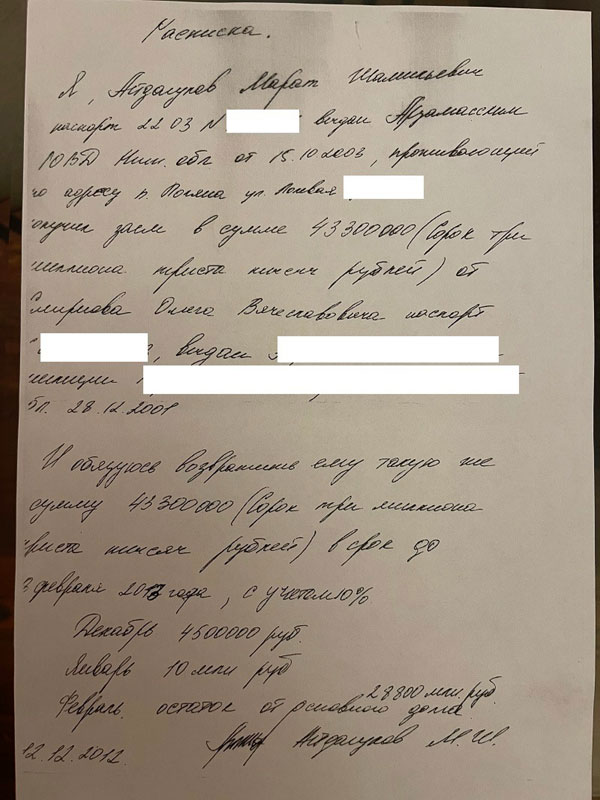 Расписка.
Я, Айдалуков Марат Шамильевич
паспорт 22 03 N выдан Арзамасским
ЮВД Ниж. обл от 15.10 2003, проживающий
по адресу п. ул.
получил заем в сумме 43300000 (Сорок три
миллиона триста тысяч рублей) от
Смирнова Олега Вячеславовича паспорт
выдан
милиции
обл. 28.12.2001
И обязуюсь возвратить ему такую же
сумму 43300000 (Сорок три миллиона
триста тысяч рублей) в срок до
февраля 2013 года, с учетом 10%
Декабрь 4500000 руб.
Январь 10 млн руб
28800 млн. руб.
Февраль остаток от основного долга
Айдалуков М.Ш.
12.12.2012